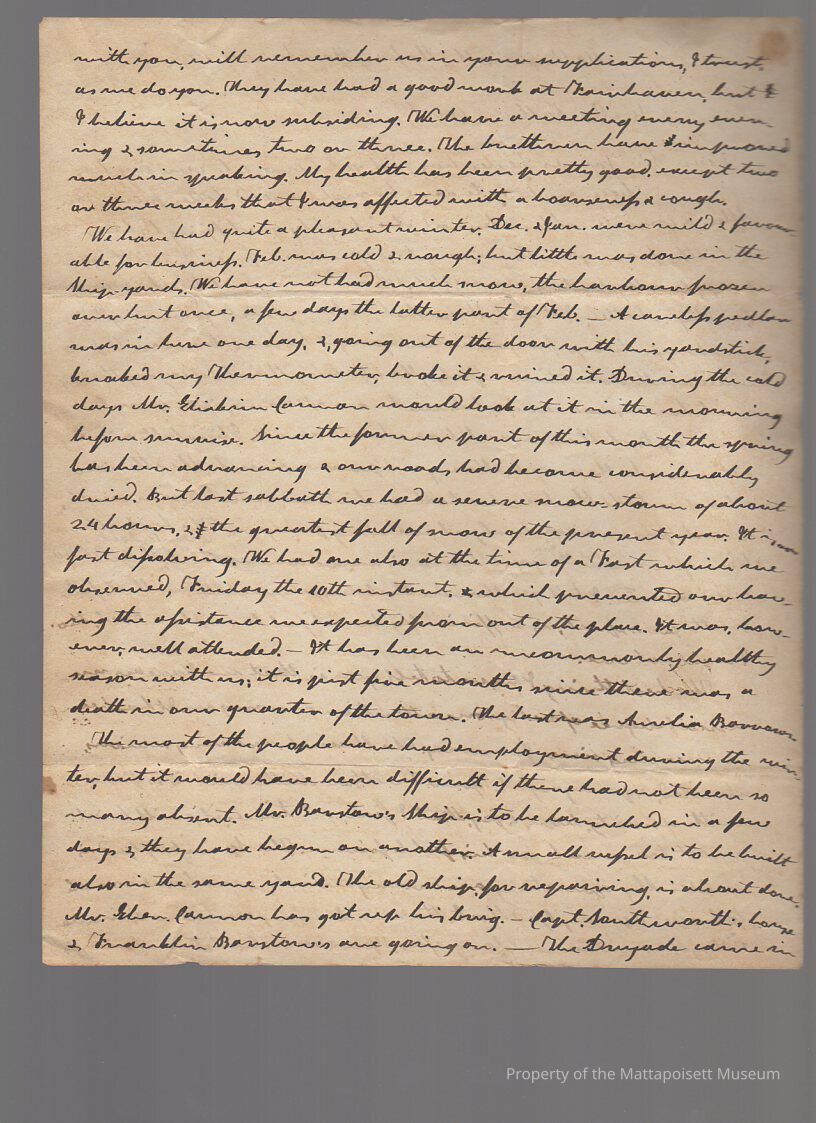 with you, will remember us in your supplications, I trust,
as we do you. They have had a good work at Fairhaven, but
I believe it is now subsiding. We have a meeting every even-
ing & sometimes two or three. The brethren have improved
much in speaking. My health has been pretty good, except two
or three weeks that I was affected with a hoarseness & cough.
We have had quite a pleasant winter. Dec. & Jan. were mild & favour-
able for business. Feb. was cold & rough; but little was done in the
Ship-yards. We have not had much snow, the harbour frozen
over but once, a few days the latter part of Feb. — A careless pedlar
was in here one day, &, going out of the door with his yardstick,
knocked my Thermometer, broke it & ruined it. During the cold
days Mr. Eliakim Cannon would look at it in the morning
before sunrise. Since the former part of this month the spring
has been advancing & our roads had become considerably
dried. But last sabbath we had a severe snow-storm of about
24 hours, & the greatest fall of snow of the present year. It is now
fast dissolving. We had one also at the time of a Fast which we
observed, Friday the 10th instant, & which prevented our hav-
ing the assistance we expected from out of the place. It was, how-
ever, well attended. — It has been an uncommonly healthy
season with us; it is just five months since there was a
death in our quarter of the town. The last was Aurelia Barrows.
The most of the people have had employment during the win-
ter, but it would have been difficult if there had not been so
many absent. Mr. Barstow's Ship is to be launched in a few
days & they have begun on another. A small vessel is to be built
also in the same yard. The old ship, for repairing, is about done.
Mr. Eben. Cannon has got up his brig. — Capt. Southworth's house
& Franklin Barstow's are going on. — The Dryade came in
Property of the Mattapoisett Museum